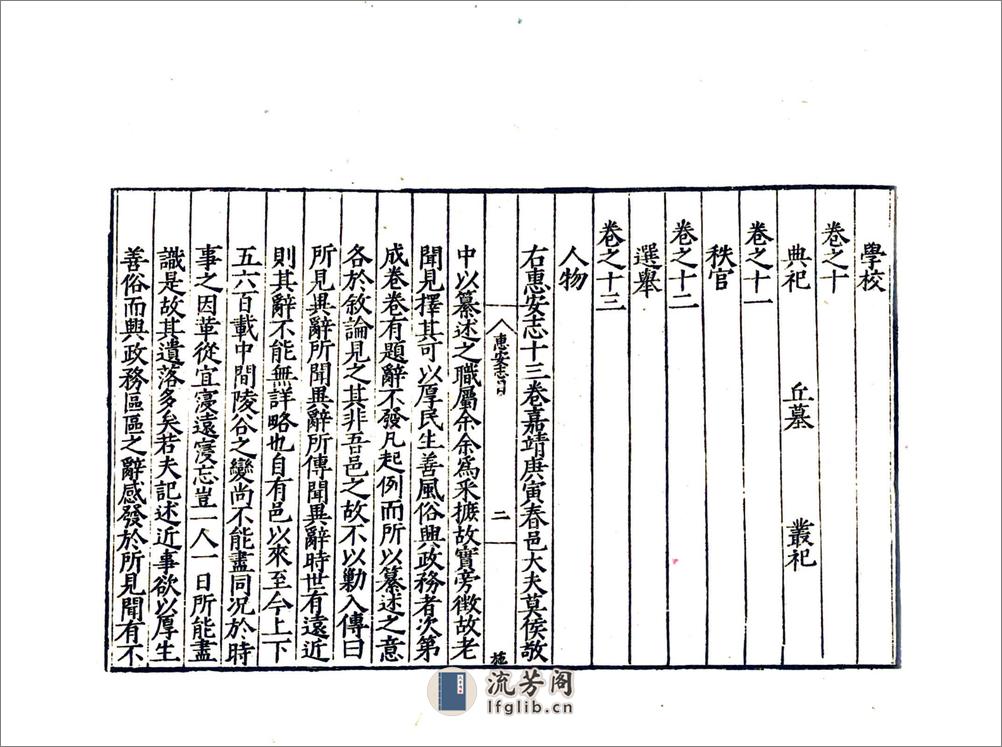 學校
卷之十
典祀　丘墓　叢祀
卷之十一
秩官
卷之十二
選舉
卷之十三
人物
右惠安志十三卷嘉靖庚寅春邑大夫莫侯敬
惠安志目
二
施
中以纂述之職屬余余爲釆摭故實旁徵故老
聞見擇其可以厚民生善風俗興政務者次第
成卷卷有題辭不發凡起例而所以纂述之意
各於敘論見之其非吾邑之故不以勦入傳曰
所見異辭所聞異辭所傳聞異辭時世有遠近
則其辭不能無詳略也自有邑以來至今上下
五六百載中間陵谷之變尚不能盡同況於時
事之因革從宜寖遠寖忘豈一人一日所能盡
識是故其遺落多矣若夫記述近事欲以厚生
善俗而興政務區區之辭感發於所見聞有不
流芳阁
lfglib.cn